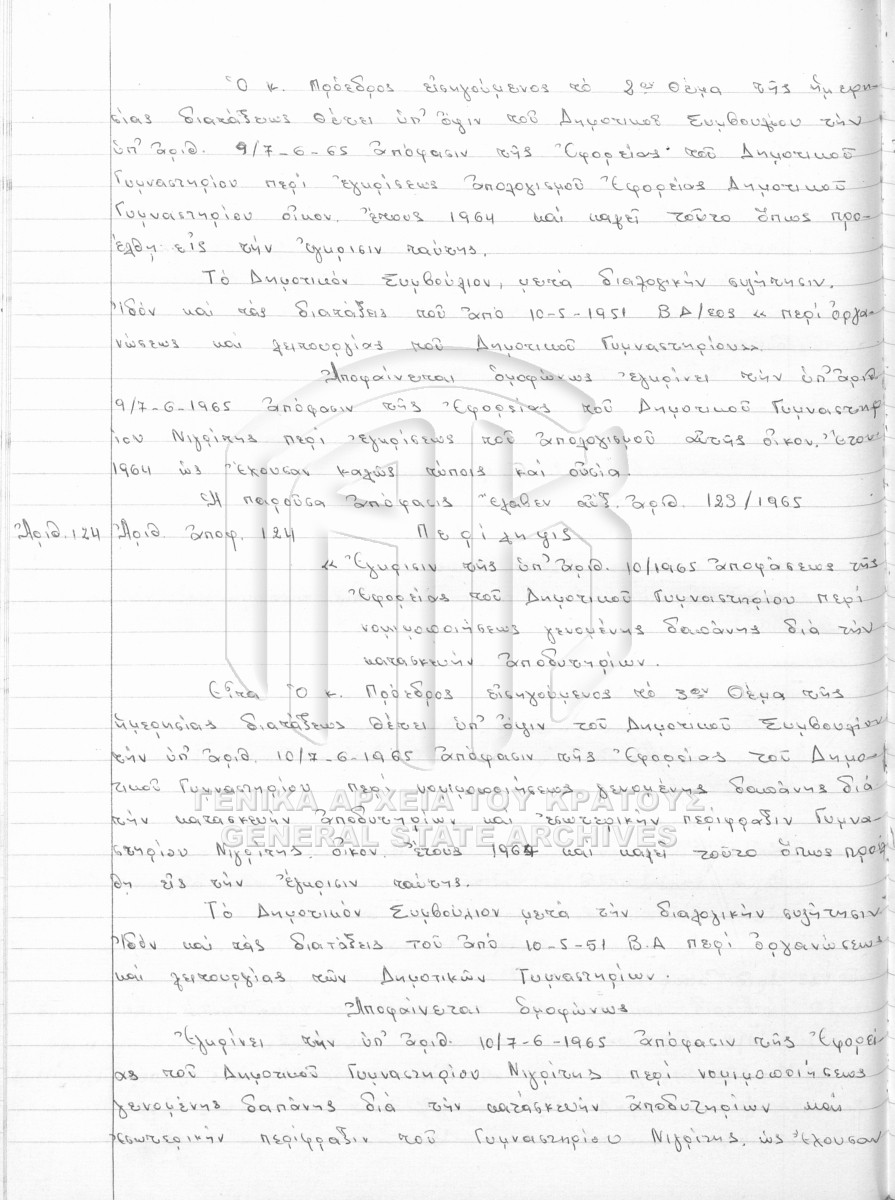 Ὁ κ. Πρόεδρος εἰσηγούμενος τό 2ον θέμα τῆς ἡμερη-
σίας διατάξεως θέτει ὑπ' ὄψιν τοῦ Δημοτικοῦ Συμβουλίου τήν
ὑπ' ἀριθ. 9/7-6-65 ἀπόφασιν τῆς Ἐφορείας τοῦ Δημοτικοῦ
Γυμναστηρίου περί ἐγκρίσεως ἀπολογισμοῦ Ἐφορείας Δημοτικοῦ
Γυμναστηρίου οἰκον. ἔτους 1964 καί καλεῖ τοῦτο ὅπως προ-
έλθῃ εἰς τήν ἔγκρισιν ταύτης.
Τό Δημοτικόν Συμβούλιον, μετά διαλογικήν συζήτησιν.
Ἰδόν καί τάς διατάξεις τοῦ ἀπό 10-5-1951 ΒΔ/τος « περί ὀργα-
νώσεως καί λειτουργίας τοῦ Δημοτικοῦ Γυμναστηρίου».
Ἀποφαίνεται ὁμοφώνως ἐγκρίνει τήν ὑπ' ἀριθ
9/7-6-1965 ἀπόφασιν τῆς Ἐφορείας τοῦ Δημοτικοῦ Γυμναστηρ
ίου Νιγρίτης περί ἐγκρίσεως τοῦ ἀπολογισμοῦ αὐτῆς οἰκον. ἔτους
1964 ὡς ἔχουσαν καλῶς τύποις καί οὐσία.
Ἡ παροῦσα ἀπόφασις ἔλαβεν αὔξ. ἀριθ. 123/1965
Ἀριθ. 124 Ἀριθ. ἀποφ. 124 Περίληψις
« Ἔγκρισιν τῆς ὑπ' ἀριθ. 10/1965 ἀποφάσεως τῆς
Ἐφορείας τοῦ Δημοτικοῦ Γυμναστηρίου περί
νομιμοποιήσεως γενομένης δαπάνης διά τήν
κατασκευήν ἀποδυτηρίων.
Εἶτα Ὁ κ. Πρόεδρος εἰσηγούμενος τό 3ον θέμα τῆς
ἡμερησίας διατάξεως θέτει ὑπ' ὄψιν τοῦ Δημοτικοῦ Συμβουλίου
τήν ὑπ' ἀριθ. 10/7-6-1965 ἀπόφασιν τῆς Ἐφορείας τοῦ Δημο-
τικοῦ Γυμναστηρίου περί νομιμοποιήσεως γενομένης δαπάνης διά
ΓΕΝΙΚΑ ΑΡΧΕΙΑ ΤΟΥ ΚΡΑΤΟΥΣ
τήν κατασκευήν ἀποδυτηρίων καί ἐσωτερικήν περίφραξιν Γυμνα-
GENERAL STATE ARCHIVES
στηρίου Νιγρίτης. οἰκον. ἔτους 1964 καί καλεῖ τοῦτο ὅπως προέλ
θῃ εἰς τήν ἔγκρισιν ταύτης.
Τό Δημοτικόν Συμβούλιον μετά τήν διαλογικήν συζήτησιν
Ἰδόν καί τάς διατάξεις τοῦ ἀπό 10-5-51 Β.Δ περί ὀργανώσεως
καί λειτουργίας τῶν Δημοτικῶν Γυμναστηρίων.
Ἀποφαίνεται ὁμοφώνως
Ἐγκρίνει τήν ὑπ' ἀριθ. 10/7-6-1965 ἀπόφασιν τῆς Ἐφορεί
ας τοῦ Δημοτικοῦ Γυμναστηρίου Νιγρίτης περί νομιμοποιήσεως
γενομένης δαπάνης διά τήν κατασκευήν ἀποδυτηρίων καί
ἐσωτερικήν περίφραξιν τοῦ Γυμναστηρίου Νιγρίτης. ὡς ἔχουσαν